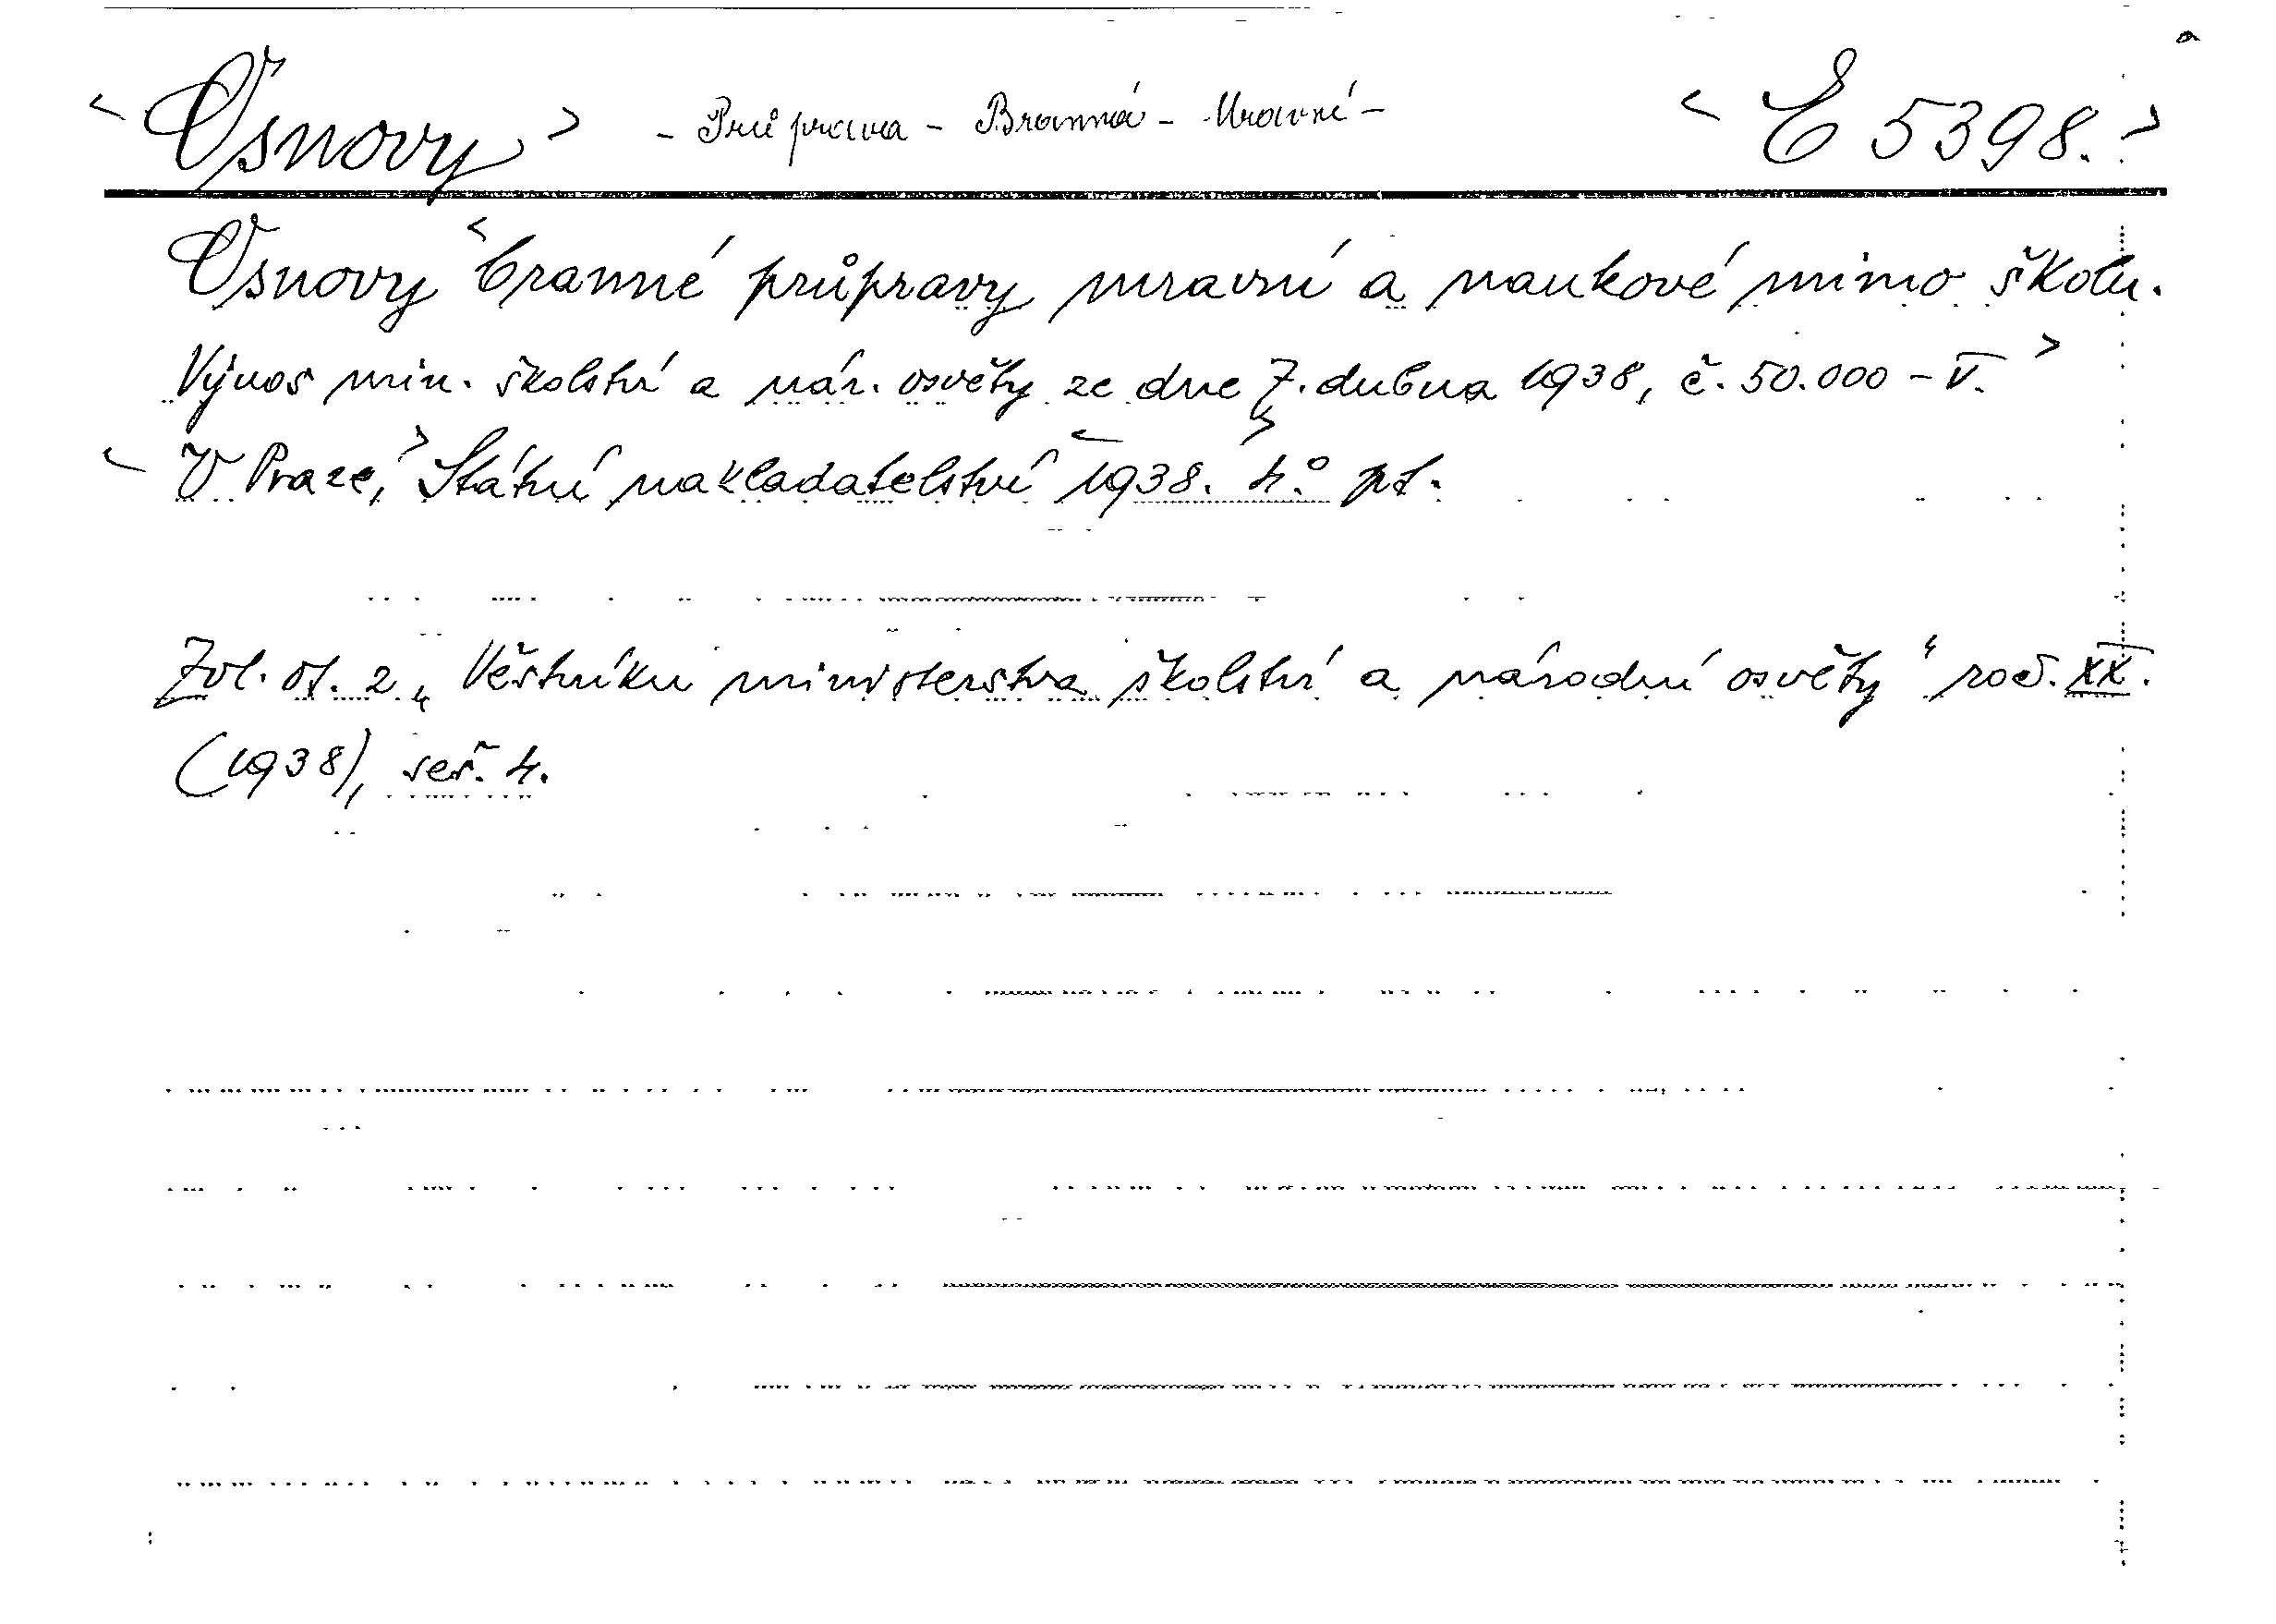 < Osnovy > - Průprava - Branná - Mravní - < E 5398. >
Osnovy < branné průpravy mravní a naukové mimo školu.
Výnos min. školství a nár. osvěty ze dne 7. dubna 1938, č. 50.000 - V. >
< V Praze, > Státní nakladatelství < 1938. > 4.° pt.
Zvl. ot. z „Věstníku ministerstva školství a národní osvěty“ roč. XX.
(1938), seš. 4.